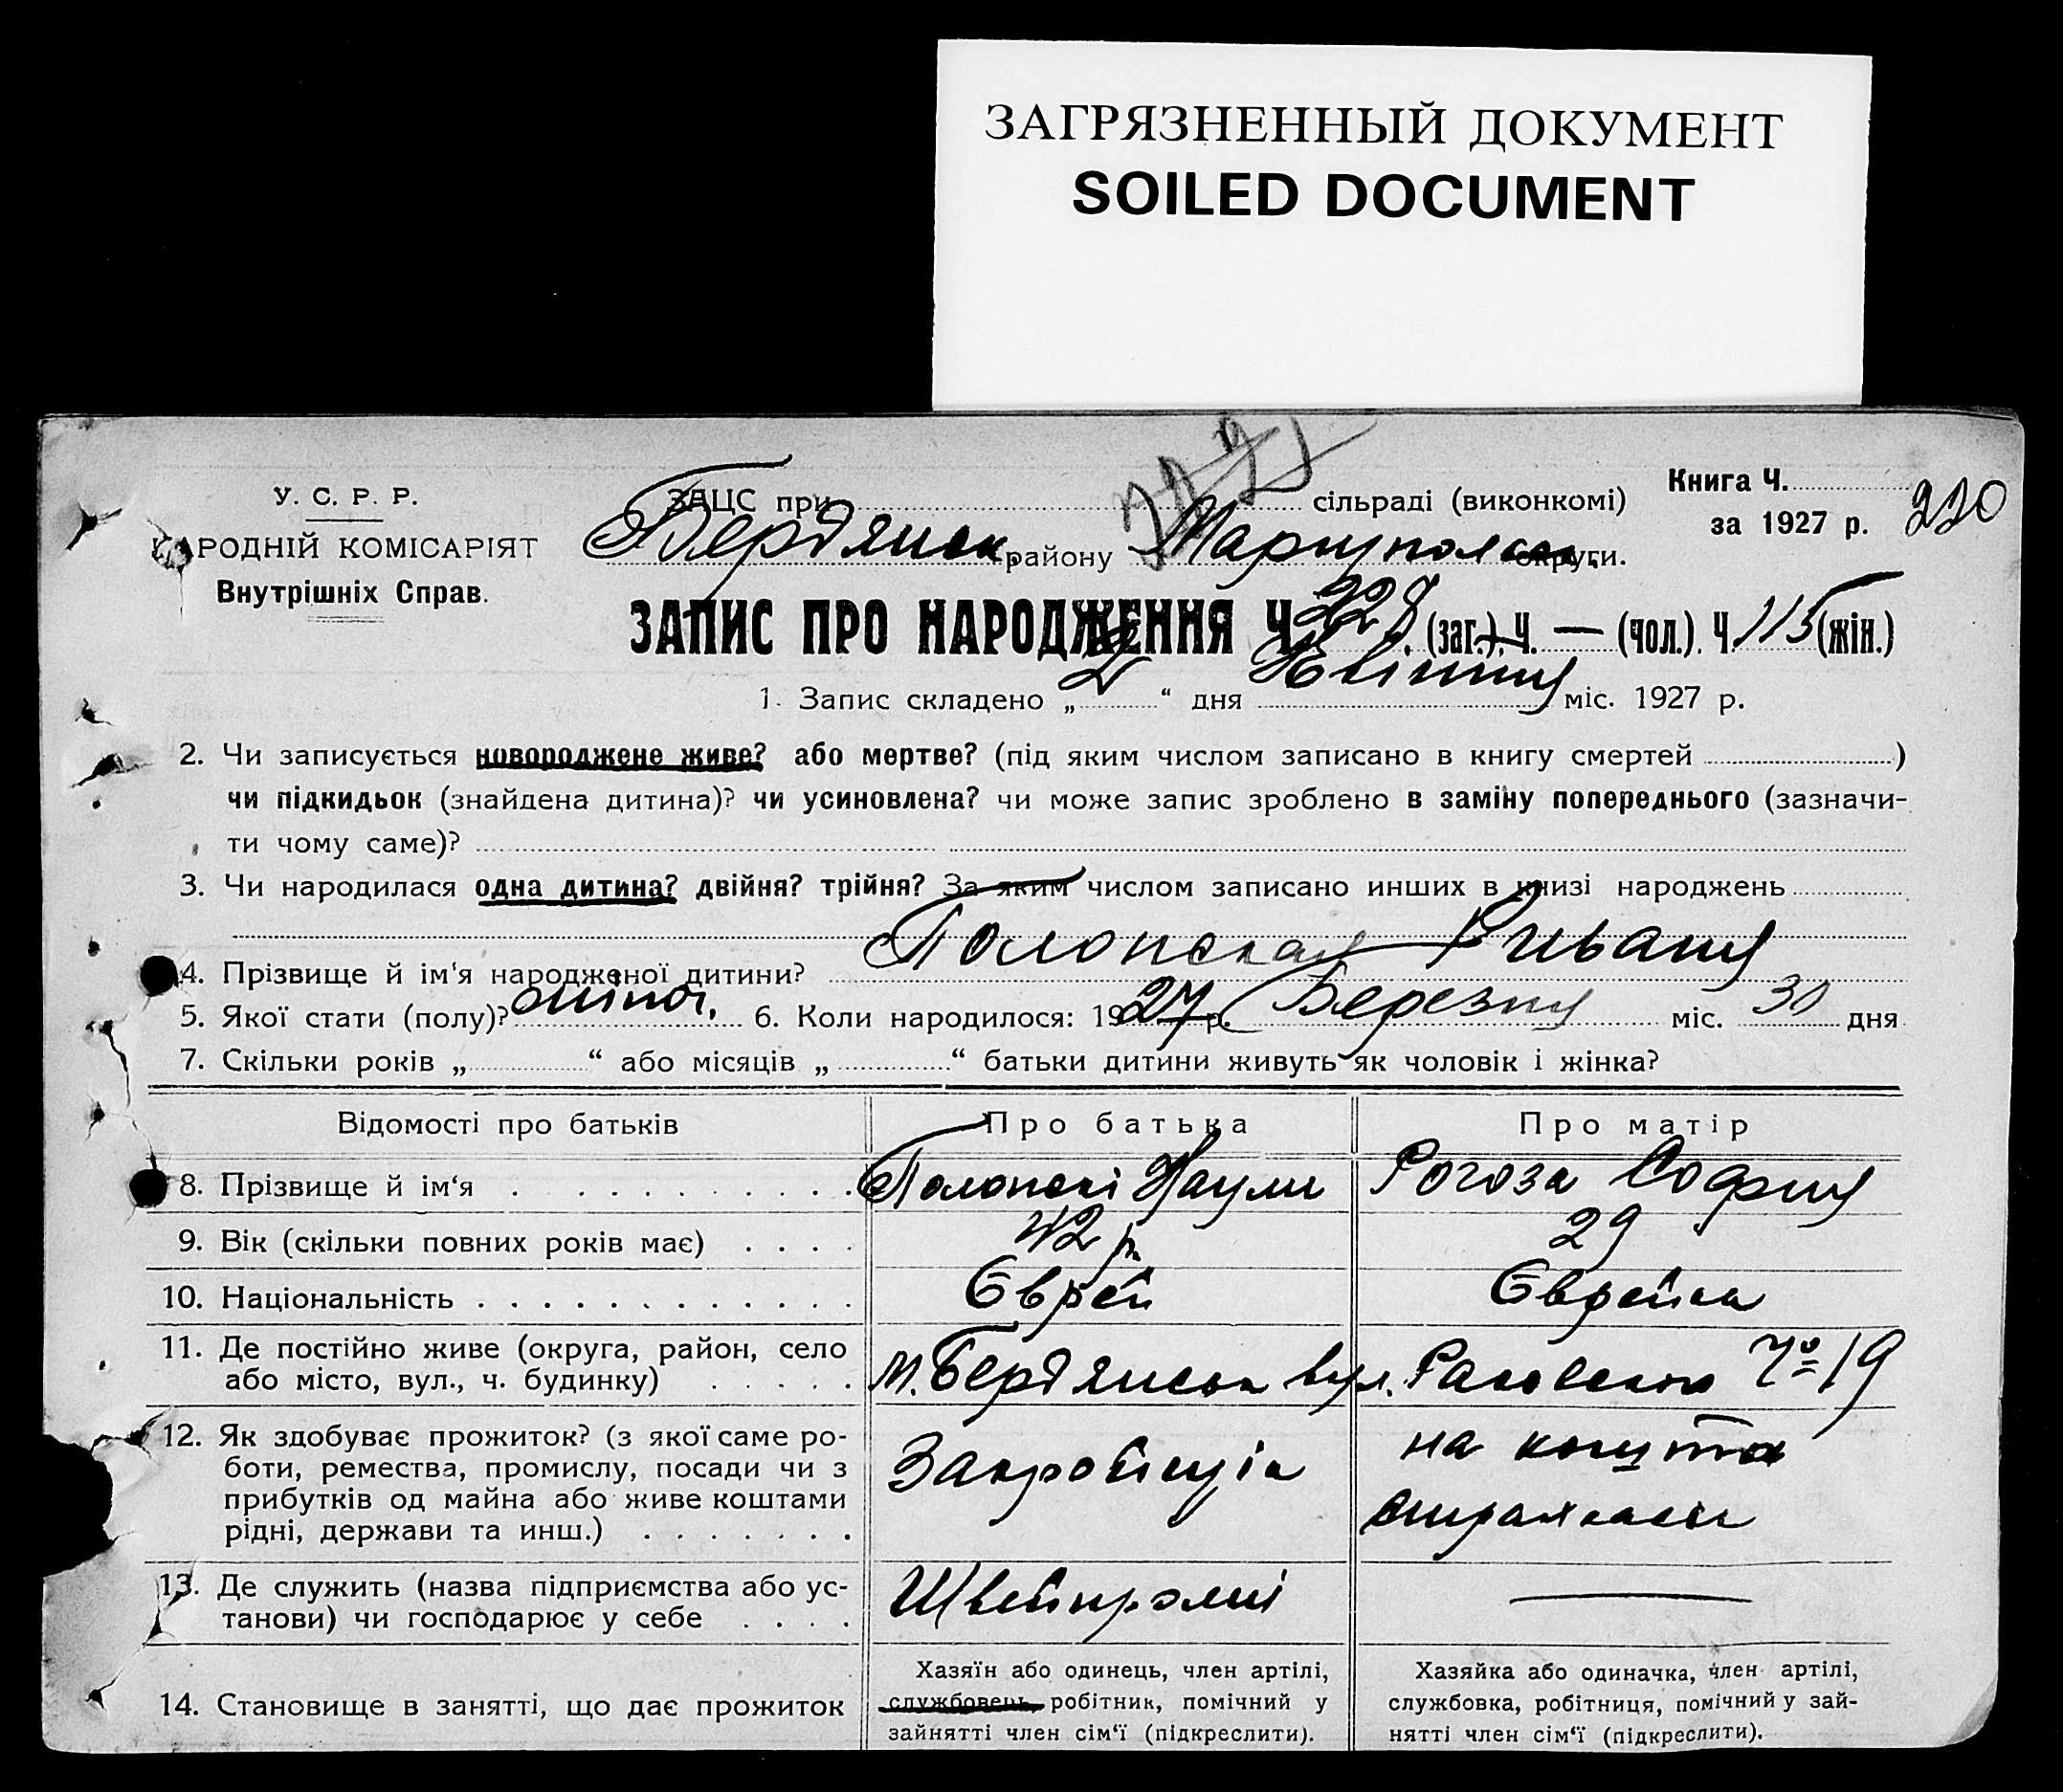 ЗАГРЯЗНЕННЫЙ ДОКУМЕНТ
SOILED DOCUMENT
У. С. Р. Р.
НАРОДНІЙ КОМІСАРІЯТ
Внутрішніх Справ.
ЗАЦС при сільраді (виконкомі)
Бердянськ району Маріупольськ округи.
Книга Ч.
за 1927 р. 220
ЗАПИС ПРО НАРОДЖЕННЯ Ч. 228 (заг.). Ч. — (чол.). Ч. 115 (жін.)
1. Запис складено „ 2 “ дня Квітня міс. 1927 р.
2. Чи записується новороджене живе? або мертве? (під яким числом записано в книгу смертей )
чи підкидьок (знайдена дитина)? чи усиновлена? чи може запис зроблено в заміну попереднього (зазначи-
ти чому саме)?
3. Чи народилася одна дитина? двійня? трійня? За яким числом записано инших в книзі народжень
4. Прізвище й ім'я народженої дитини? Полонская
5. Якої стати (полу)? жіноч. 6. Коли народилося: 1927 р. Березня міс. 30 дня
7. Скільки років „ “ або місяців „ “ батьки дитини живуть як чоловік і жінка?
Відомості про батьків Про батька Про матір
8. Прізвище й ім'я Полонскі Наум Рогоза София
9. Вік (скільки повних років має) 42 р. 29
10. Національність Єврей Єврейка
11. Де постійно живе (округа, район, село
або місто, вул., ч. будинку) м. Бердянськ вул. Раковського № 19
12. Як здобуває прожиток? (з якої саме ро-
боти, ремества, промислу, посади чи з
прибутків од майна або живе коштами
рідні, держави та инш.) на кошта
13. Де служить (назва підприємства або ус-
танови) чи господарює у себе Швейпромі —
14. Становище в занятті, що дає прожиток
Хазяїн або одинець, член артілі,
службовець, робітник, помічний у
зайнятті член сім'ї (підкреслити).
Хазяйка або одиначка, член артілі,
службовка, робітниця, помічний у зай-
нятті член сім'ї (підкреслити).